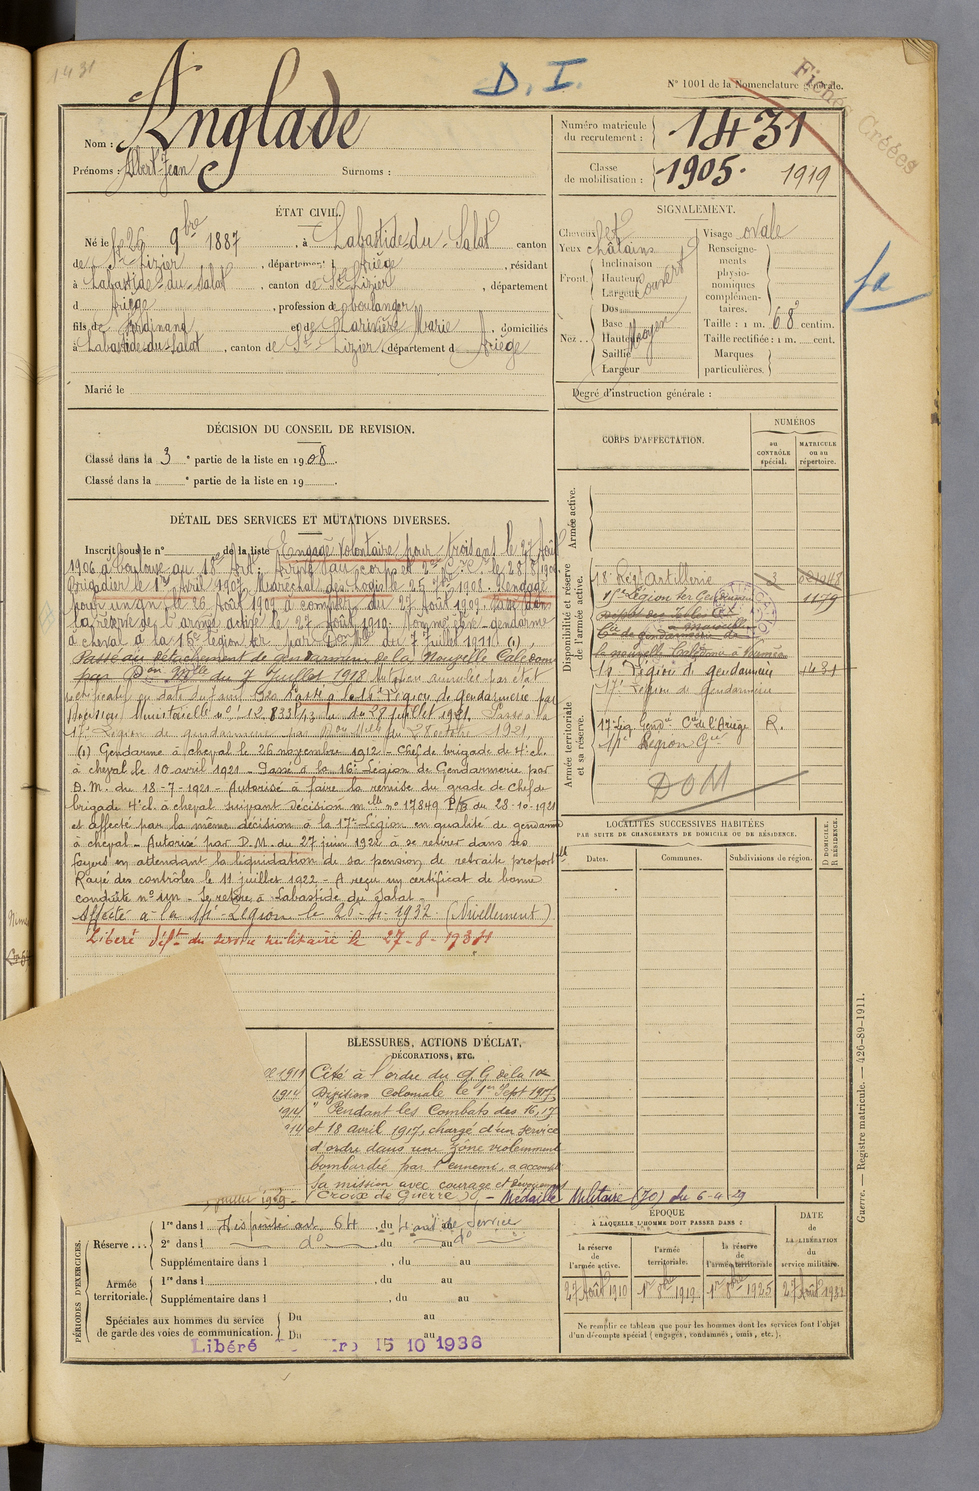 1431
D. I.
N° 1001 de la Nomenclature générale.
Fiches Créées
Nom : Anglade
Prénoms : Albert Jean Surnoms :
Numéro matricule du recrutement : 1431
Classe de mobilisation : 1905. 1919
ÉTAT CIVIL.
Né le 26 9bre 1887, à Labastide-du-Salat canton
de St Lizier, département Ariège, résidant
à Labastide-du-Salat, canton de St Lizier, département
d Ariège, profession de boulanger
fils de Ferdinand et de Marie, domiciliés
à Labastide-du-Salat, canton de St Lizier, département d Ariège
Marié le
SIGNALEMENT.
Cheveux
Yeux châtains
Front. Inclinaison
Hauteur
Largeur
couvert
Nez.. Dos
Base
Hauteur
Saillie
Largeur
Moyen
Visage ovale
Renseignements physionomiques complémentaires.
Taille : 1 m. 68 centim.
Taille rectifiée : 1 m. cent.
Marques particulières.
Degré d'instruction générale :
fa
DÉCISION DU CONSEIL DE REVISION.
Classé dans la 3e partie de la liste en 1908.
Classé dans la e partie de la liste en 19
DÉTAIL DES SERVICES ET MUTATIONS DIVERSES.
Inscrit sous le n° de la liste Engagé volontaire pour trois ans le 27 Août
1906 à Toulouse au 18e Art. Arrivé au corps et 2e C.C. le 28-8-1906.
Brigadier le 1er Avril 1907 Maréchal des Logis le 25 7bre 1908. Rengagé
pour un an le 26 Août 1909 à compter du 27 Août 1909. Passé dans
la réserve de l'armée active le 27 Août 1910. Nommé élève-gendarme
à cheval à la 15e légion ter par Don Mlle du 7 Juillet 1911 (1)
Passé au détachement de gendarmerie de la Nouvelle Calédonie
par Don Mlle du 7 Juillet 1918 Mutation annulée par état
rectificatif en date du 1920 Passé à la 14e Légion de gendarmerie par
Décision Ministérielle n° 12.833 du 28 juillet 1921. Passé à la
17e Légion de gendarmerie par Don Mlle du 28 octobre 1921.
(1) Gendarme à cheval le 26 novembre 1912 - Chef de brigade de 4e cl.
à cheval le 10 avril 1921 - Passé à la 16e Légion de Gendarmerie par
D. M. du 18-7-1921 - Autorisé à faire la remise du grade de Chef de
brigade 4e cl. à cheval suivant décision mlle n° 17849 du 28-10-1921
et affecté par la même décision à la 17e Légion en qualité de gendarme
à cheval - Autorisé par D. M. du 27 juin 1922 à se retirer dans ses
foyers en attendant la liquidation de sa pension de retraite proportlle
Rayé des contrôles le 11 juillet 1922 - A reçu un certificat de bonne
conduite n° un - Se retire à Labastide du Salat -
Affecté à la Légion le 20-4-1932 (Nivellement)
Libéré déft du service militaire le 27-8-1934
CORPS D'AFFECTATION.
NUMÉROS
au CONTRÔLE spécial.
MATRICULE ou au répertoire.
Armée active.
Disponibilité et réserve de l'armée active.
18e Régt Artillerie
15e Légion ter Gendarmerie 1179
Cie de gendarmerie de
la nouvelle Calédonie à Nouméa
14e Légion de gendarmerie 1431
17e Légion de gendarmerie
Armée territoriale et sa réserve.
17e Lég. Gend. Cie de l'Ariège R.
Légion Gie
DOM
LOCALITÉS SUCCESSIVES HABITÉES
PAR SUITE DE CHANGEMENTS DE DOMICILE OU DE RÉSIDENCE.
Dates. Communes. Subdivisions de région. D DOMICILE. R RÉSIDENCE.
BLESSURES, ACTIONS D'ÉCLAT, DÉCORATIONS, ETC.
1911
1914
1914
Cité à l'ordre du Q.G. de la 10e
Division Coloniale le 1er Sept 1917
" Pendant les Combats des 16, 17
et 18 avril 1917, chargé d'un service
d'ordre dans une zône violemment
bombardée par l'ennemi, a accompli
sa mission avec courage et dévouement
Croix de Guerre - Médaille Militaire (JO) du 6-4-29
juillet 1929.
PÉRIODES D'EXERCICES.
Réserve... 1re dans l Dispensé art. 64, du 4 ans de Service
2e dans l do, du au do
Supplémentaire dans l, du au
Armée territoriale. 1re dans l, du au
Supplémentaire dans l, du au
Spéciales aux hommes du service de garde des voies de communication. Du au
Du au
Libéré 15 10 1936
ÉPOQUE
À LAQUELLE L'HOMME DOIT PASSER DANS :
la réserve de l'armée active. l'armée territoriale. la réserve de l'armée territoriale
DATE de LA LIBÉRATION du service militaire.
27 Août 1910 1er 8bre 1919 1er 8bre 1925 27 Août 1934
Ne remplir ce tableau que pour les hommes dont les services font l'objet
d'un décompte spécial (engagés, condamnés, omis, etc.).
Guerre. — Registre matricule. — 426-89-1911.